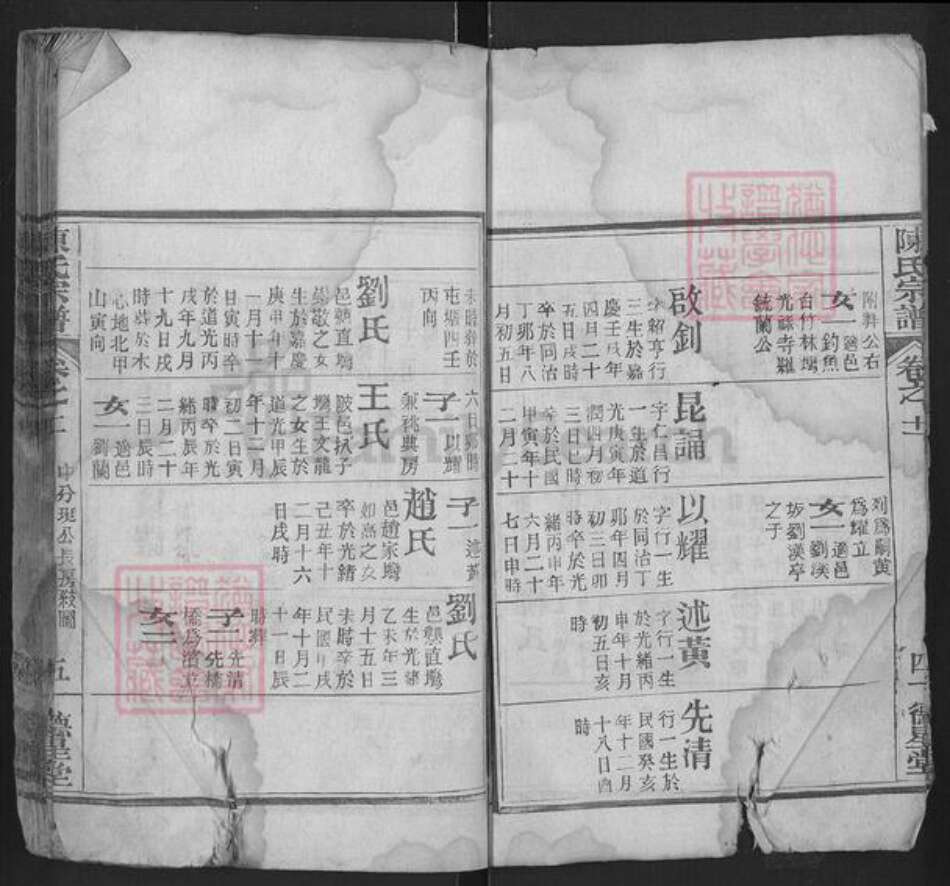 陳氏宗譜
卷之十二
附葬公右
女一適邑
釣魚
台竹林塆
光祿寺羅
銑蘭公
啟釗
字紹亨行
三生於嘉
慶壬戌年
四月二十
五日戌時
卒於同治
丁卯年八
月初五日
昆誦
字仁昌行
一生於道
光庚寅年
潤四月初
三日巳時
卒於民國
甲寅年十
二月二十
列爲嗣黃
爲耀立
女一適邑
劉漢
坂劉漢亭
之子
以耀
字行一生
於同治丁
卯年四月
初三日卯
時卒於光
緒丙申年
六月二十
七日申時
述黃
字行一生
於光緒丙
申年十月
初五日亥
時
先清
行一生於
民國癸亥
年十二月
十八日酉
時
德星堂
未時葬於
屯塘四壬
丙向
劉氏
邑執直塆
崇敬之女
生於嘉慶
庚申年十
一月十一
日寅時卒
於道光丙
戌年九月
十九日戌
時葬於木
心地北甲
山寅向
六日卯時
子一以耀
兼祧典房
王氏
陂邑扒子
塆王文龍
之女生於
道光甲辰
年十二月
初二日寅
時卒於光
緒丙辰年
二月二十
三日辰時
女一適邑
劉蘭
子一述黃
趙氏
邑趙家塆
如意之女
卒於光緒
己丑年十
二月十六
日戌時
劉氏
邑龔直塆
生於光緒
乙未年三
月十五日
未時卒於
民國甲戌
年十月二
十一日辰
時葬
子二先清
先橋
橋爲濱立
女二
陳氏宗譜
卷之十二
中分班公長房毅圖
五
德星堂